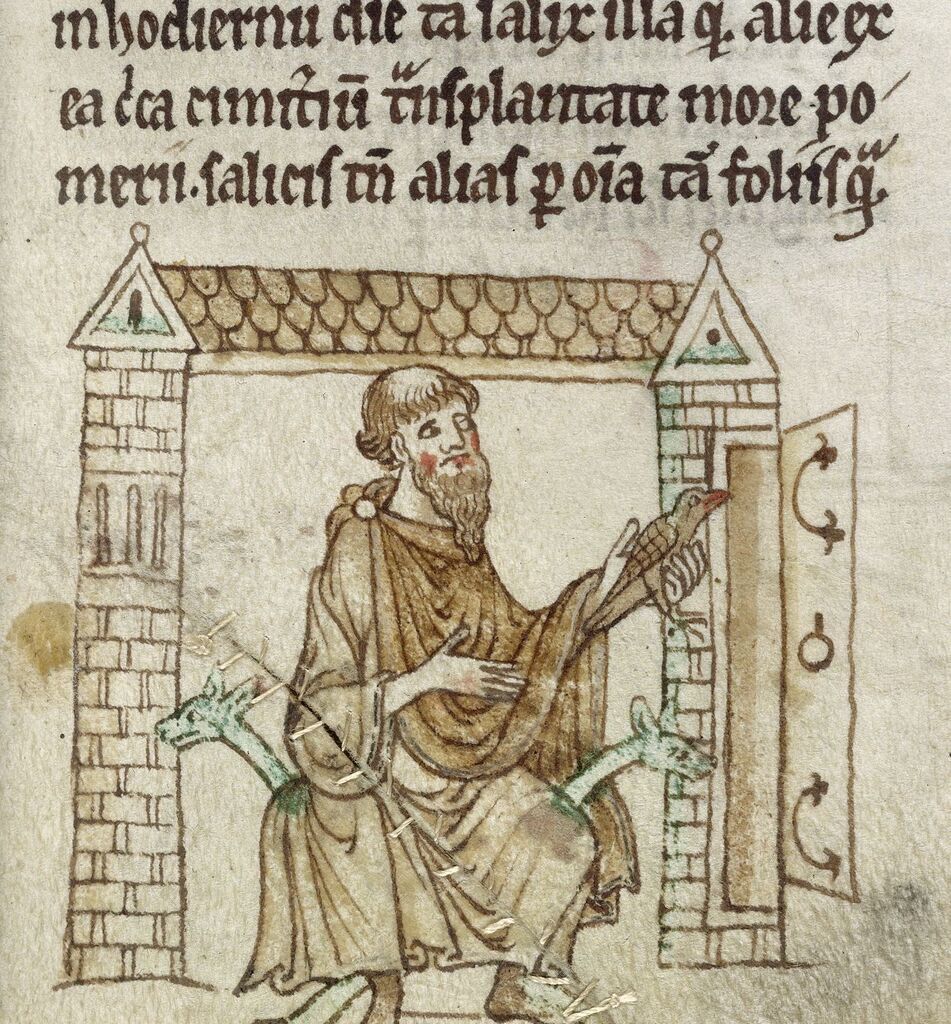 in hodiernū diē tā salix illa q̄. alie ex
ea c̓ca cimit̓iū t̾nsplantate more po
merii. salicis tn̄ alias ꝑ oīa tā foliis q̾.